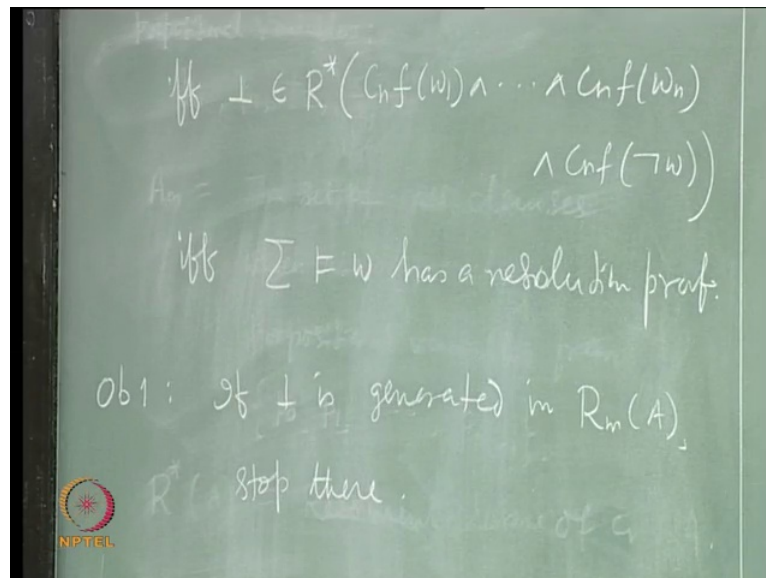 iff ⊥ ∈ R*(Cnf(w₁) ∧ ⋯ ∧ Cnf(wₙ)
∧ Cnf(¬w))
iff Σ ⊨ w has a resolution proof.
Ob1: If ⊥ is generated in Rₘ(A),
stop there.
NPTEL